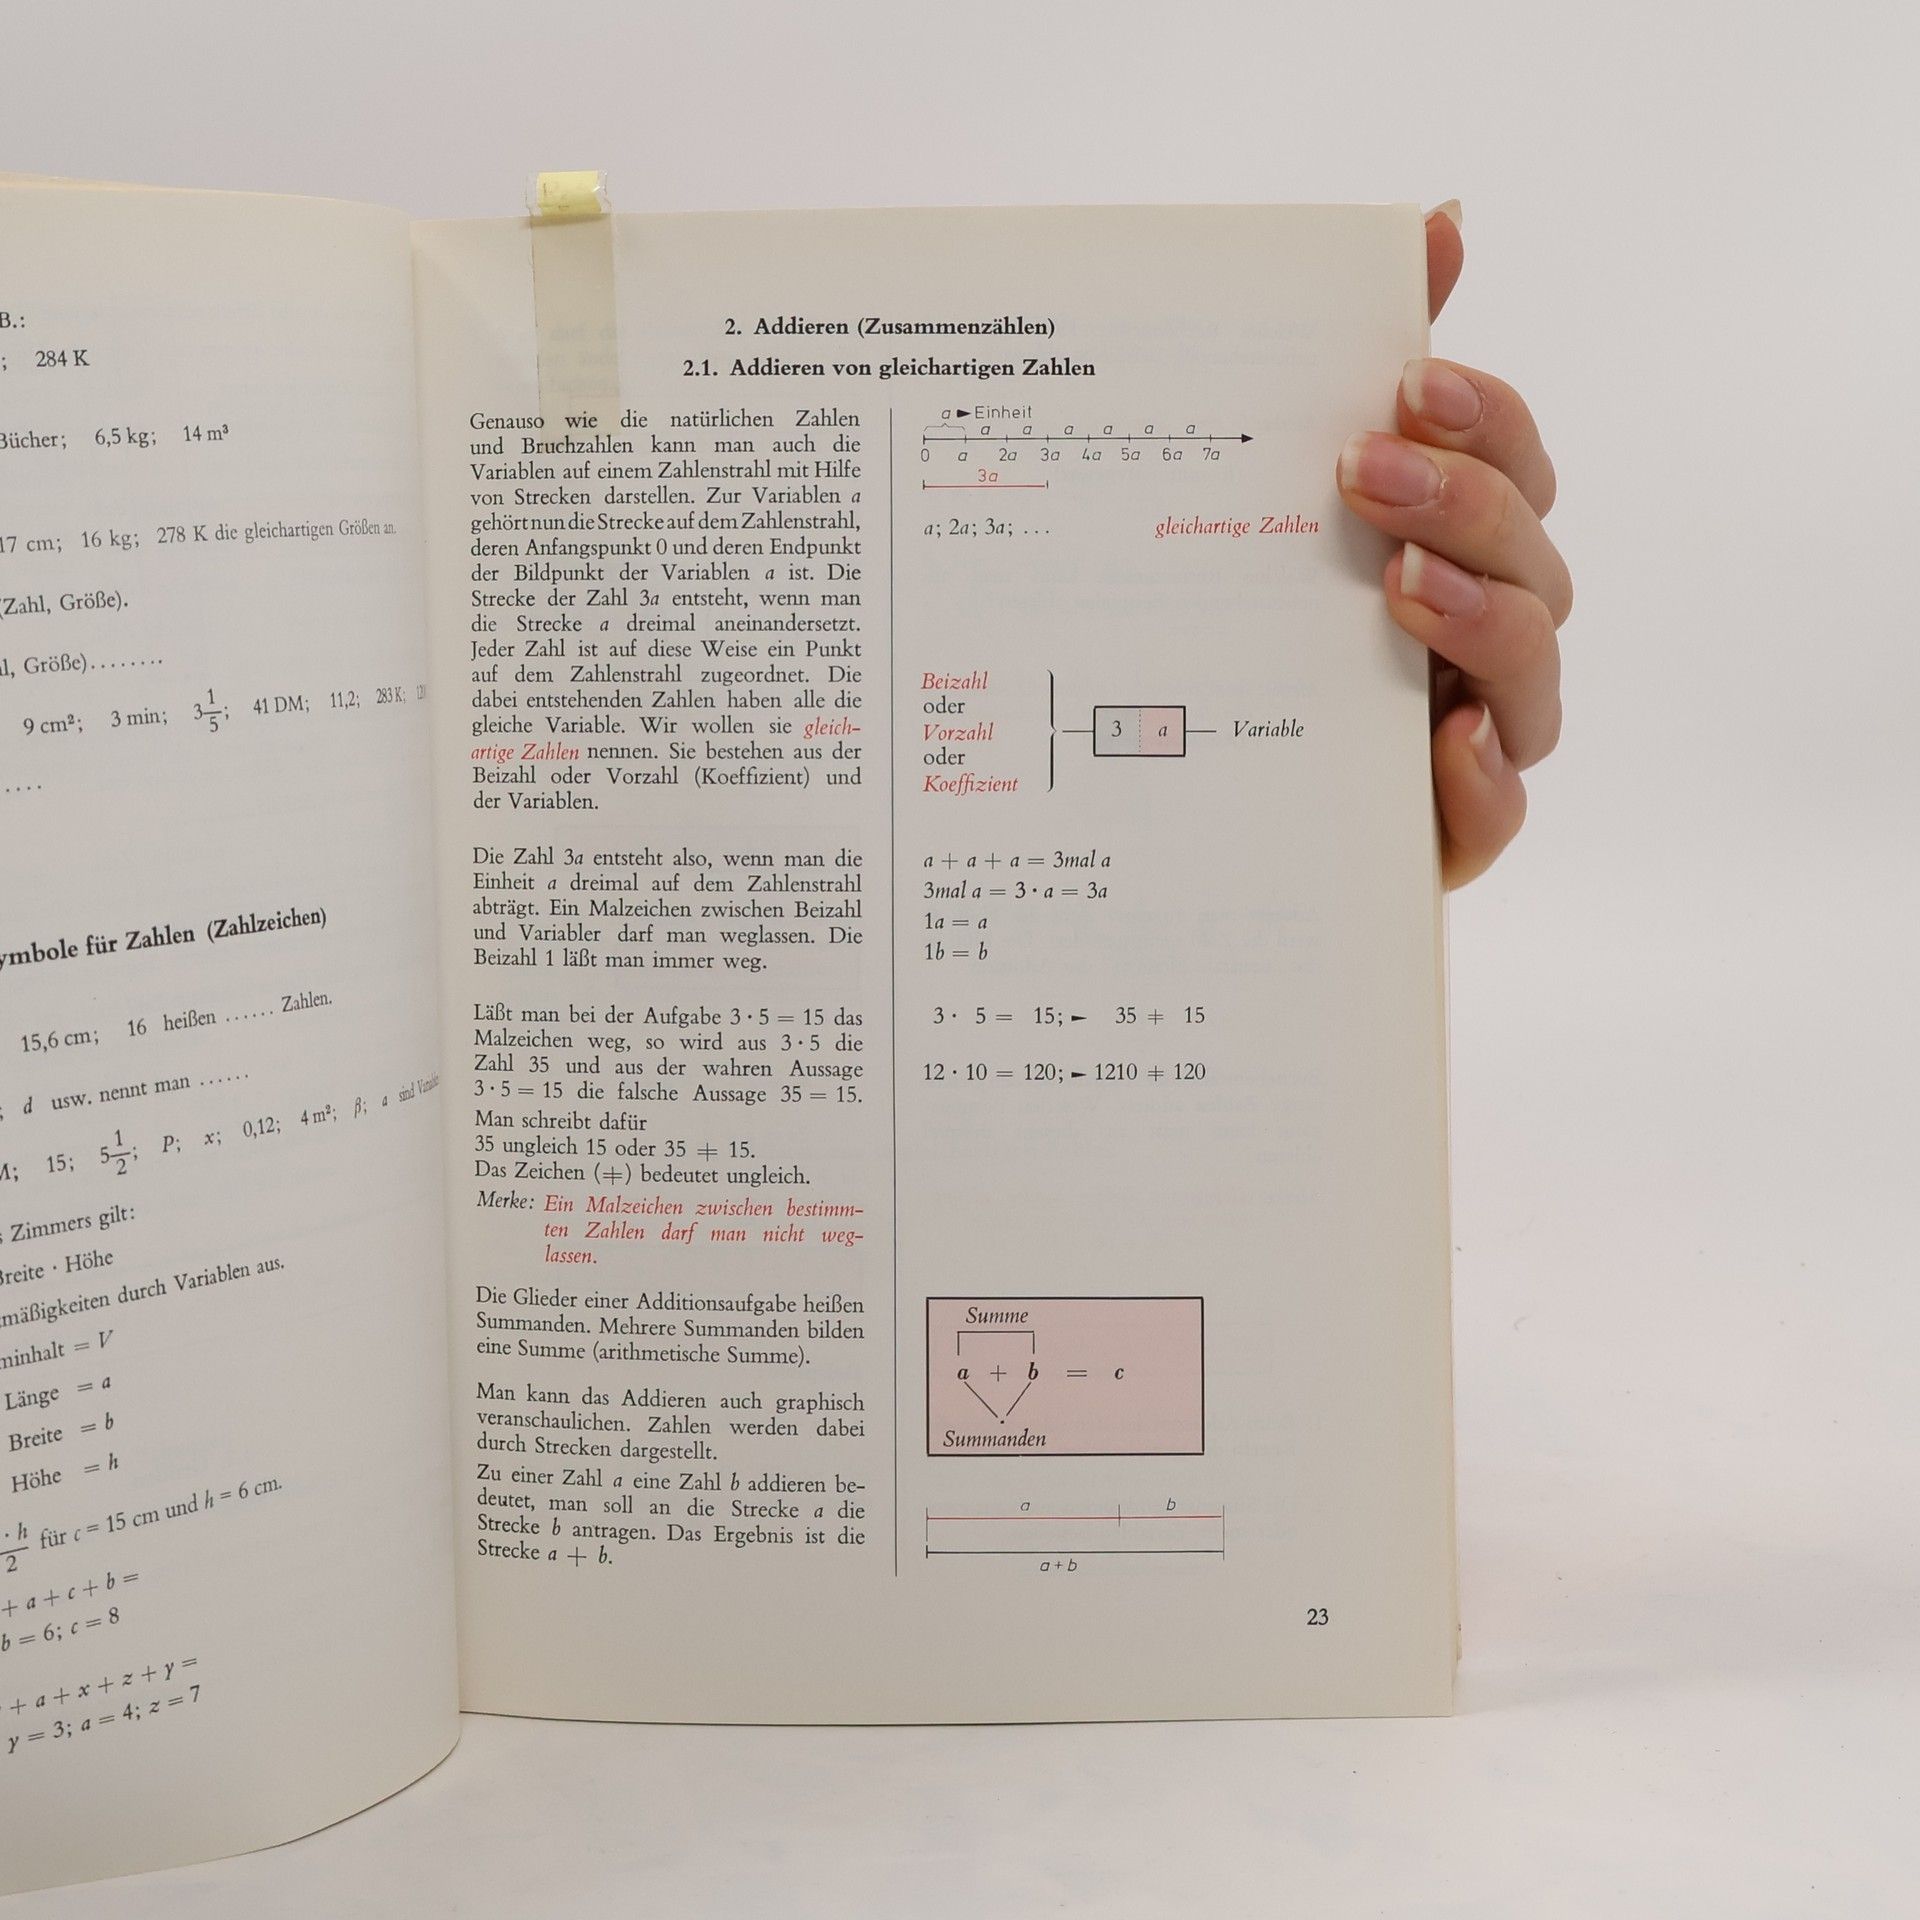 B.:
; 284 K
Bücher; 6,5 kg; 14 m³
17 cm; 16 kg; 278 K die gleichartigen Größen an.
(Zahl, Größe).
l, Größe)........
9 cm²; 3 min; 3 1/5; 41 DM; 11,2; 283 K;
....
ymbole für Zahlen (Zahlzeichen)
15,6 cm; 16 heißen ...... Zahlen.
; d usw. nennt man ......
M; 15; 5 1/2; P; x; 0,12; 4 m²; β; a sind
s Zimmers gilt:
Breite · Höhe
mäßigkeiten durch Variablen aus.
minhalt = V
Länge = a
Breite = b
Höhe = h
· h / 2 für c = 15 cm und h = 6 cm.
+ a + c + b =
b = 6; c = 8
+ a + x + z + γ =
γ = 3; a = 4; z = 7
2. Addieren (Zusammenzählen)
2.1. Addieren von gleichartigen Zahlen
Genauso wie die natürlichen Zahlen
und Bruchzahlen kann man auch die
Variablen auf einem Zahlenstrahl mit Hilfe
von Strecken darstellen. Zur Variablen a
gehört nun die Strecke auf dem Zahlenstrahl,
deren Anfangspunkt 0 und deren Endpunkt
der Bildpunkt der Variablen a ist. Die
Strecke der Zahl 3a entsteht, wenn man
die Strecke a dreimal aneinandersetzt.
Jeder Zahl ist auf diese Weise ein Punkt
auf dem Zahlenstrahl zugeordnet. Die
dabei entstehenden Zahlen haben alle die
gleiche Variable. Wir wollen sie gleich-
artige Zahlen nennen. Sie bestehen aus der
Beizahl oder Vorzahl (Koeffizient) und
der Variablen.
Die Zahl 3a entsteht also, wenn man die
Einheit a dreimal auf dem Zahlenstrahl
abträgt. Ein Malzeichen zwischen Beizahl
und Variabler darf man weglassen. Die
Beizahl 1 läßt man immer weg.
Läßt man bei der Aufgabe 3 · 5 = 15 das
Malzeichen weg, so wird aus 3 · 5 die
Zahl 35 und aus der wahren Aussage
3 · 5 = 15 die falsche Aussage 35 = 15.
Man schreibt dafür
35 ungleich 15 oder 35 ≠ 15.
Das Zeichen (≠) bedeutet ungleich.
Merke: Ein Malzeichen zwischen bestimm-
ten Zahlen darf man nicht weg-
lassen.
Die Glieder einer Additionsaufgabe heißen
Summanden. Mehrere Summanden bilden
eine Summe (arithmetische Summe).
Man kann das Addieren auch graphisch
veranschaulichen. Zahlen werden dabei
durch Strecken dargestellt.
Zu einer Zahl a eine Zahl b addieren be-
deutet, man soll an die Strecke a die
Strecke b antragen. Das Ergebnis ist die
Strecke a + b.
a ► Einheit
a a a a a a
0 a 2a 3a 4a 5a 6a 7a
3a
a; 2a; 3a; ... gleichartige Zahlen
Beizahl
oder
Vorzahl
oder
Koeffizient
3 a Variable
a + a + a = 3mal a
3mal a = 3 · a = 3a
1a = a
1b = b
3 · 5 = 15; ► 35 ≠ 15
12 · 10 = 120; ► 1210 ≠ 120
Summe
a + b = c
Summanden
a b
a + b
23